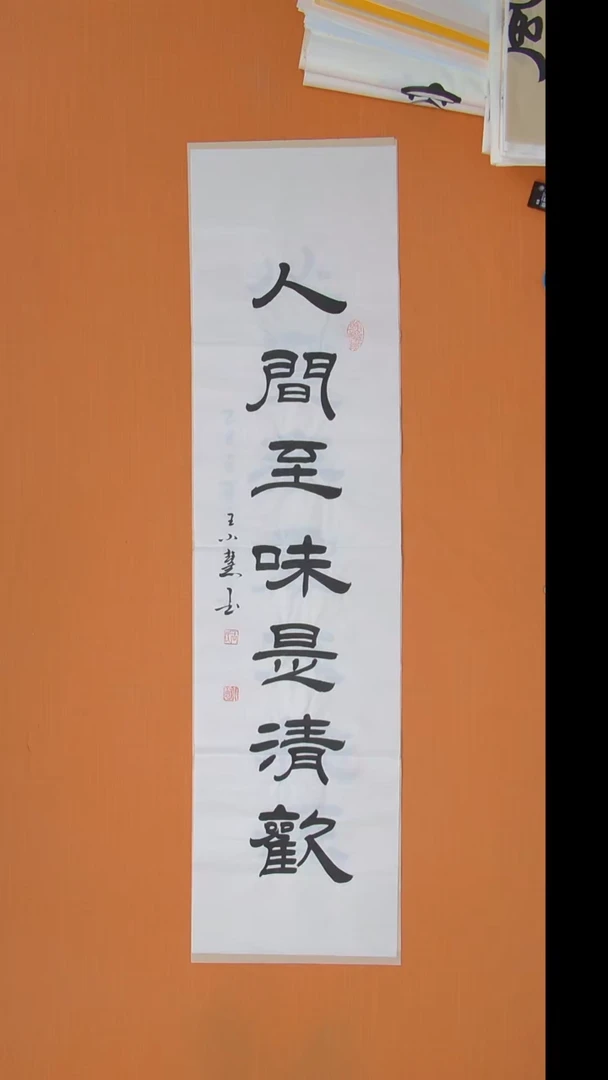 人間至味是清歡
王小慧書